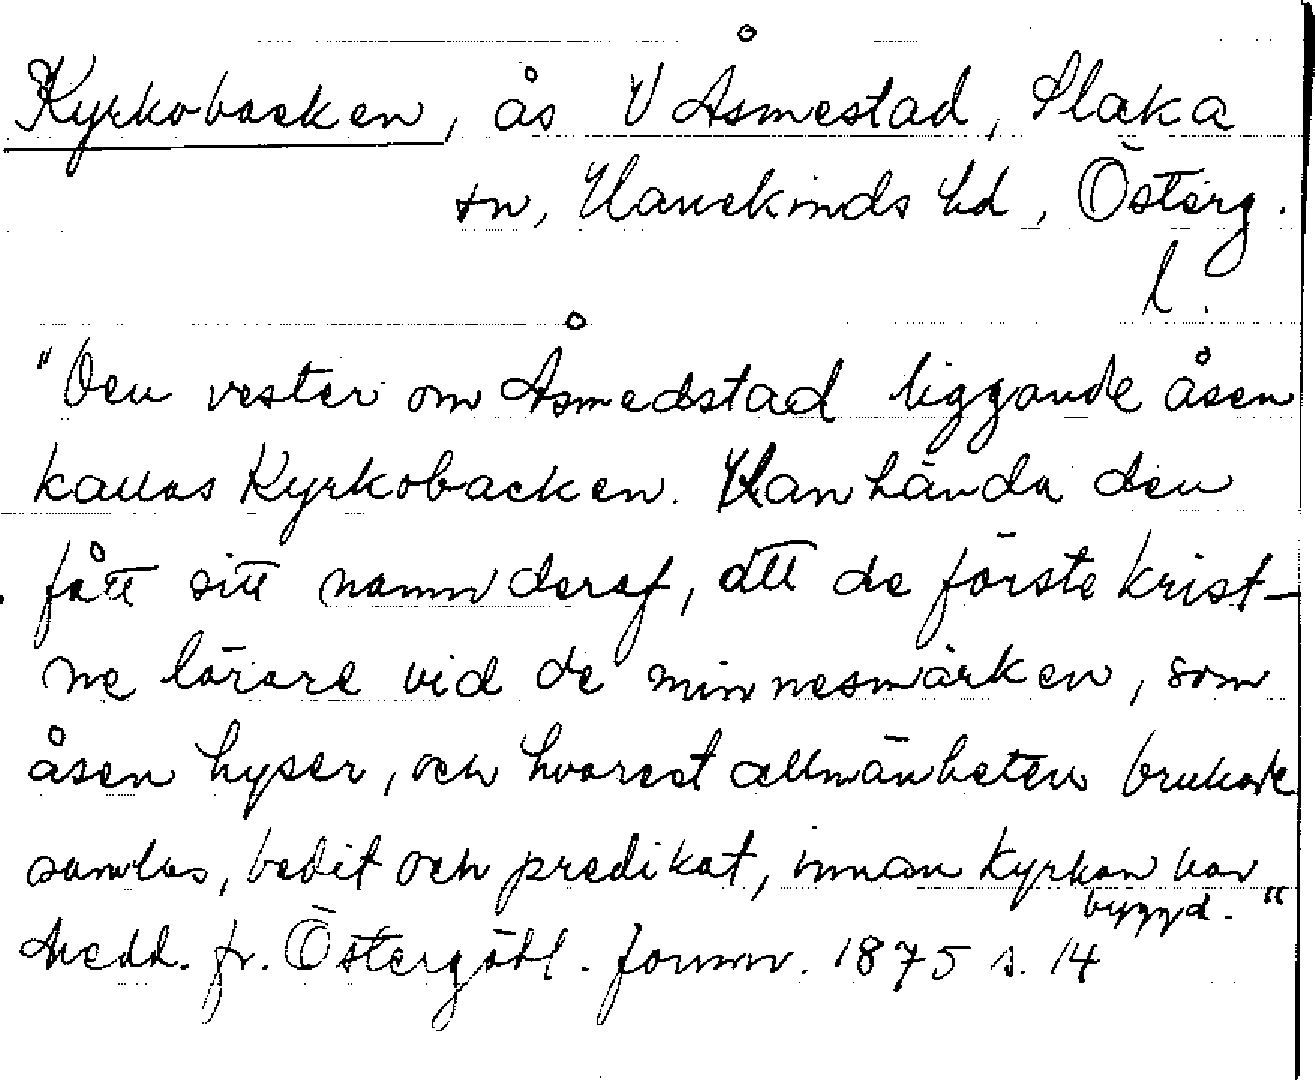 Kyrkobacken, ås V Åsmestad, Slaka
sn, Hanekinds hd, Österg.
l.
"Den vester om Åsmedstad liggande åsen
kallas Kyrkobacken. Kanhända den
fått sitt namn deraf, att de förste krist-
ne lärare vid de minnesmärken, som
åsen hyser, och hvarest allmänheten brukade
samlas, bedit och predikat, innan kyrkan var
byggd."
Medd. fr. Östergötl. fornm. 1875 s. 14